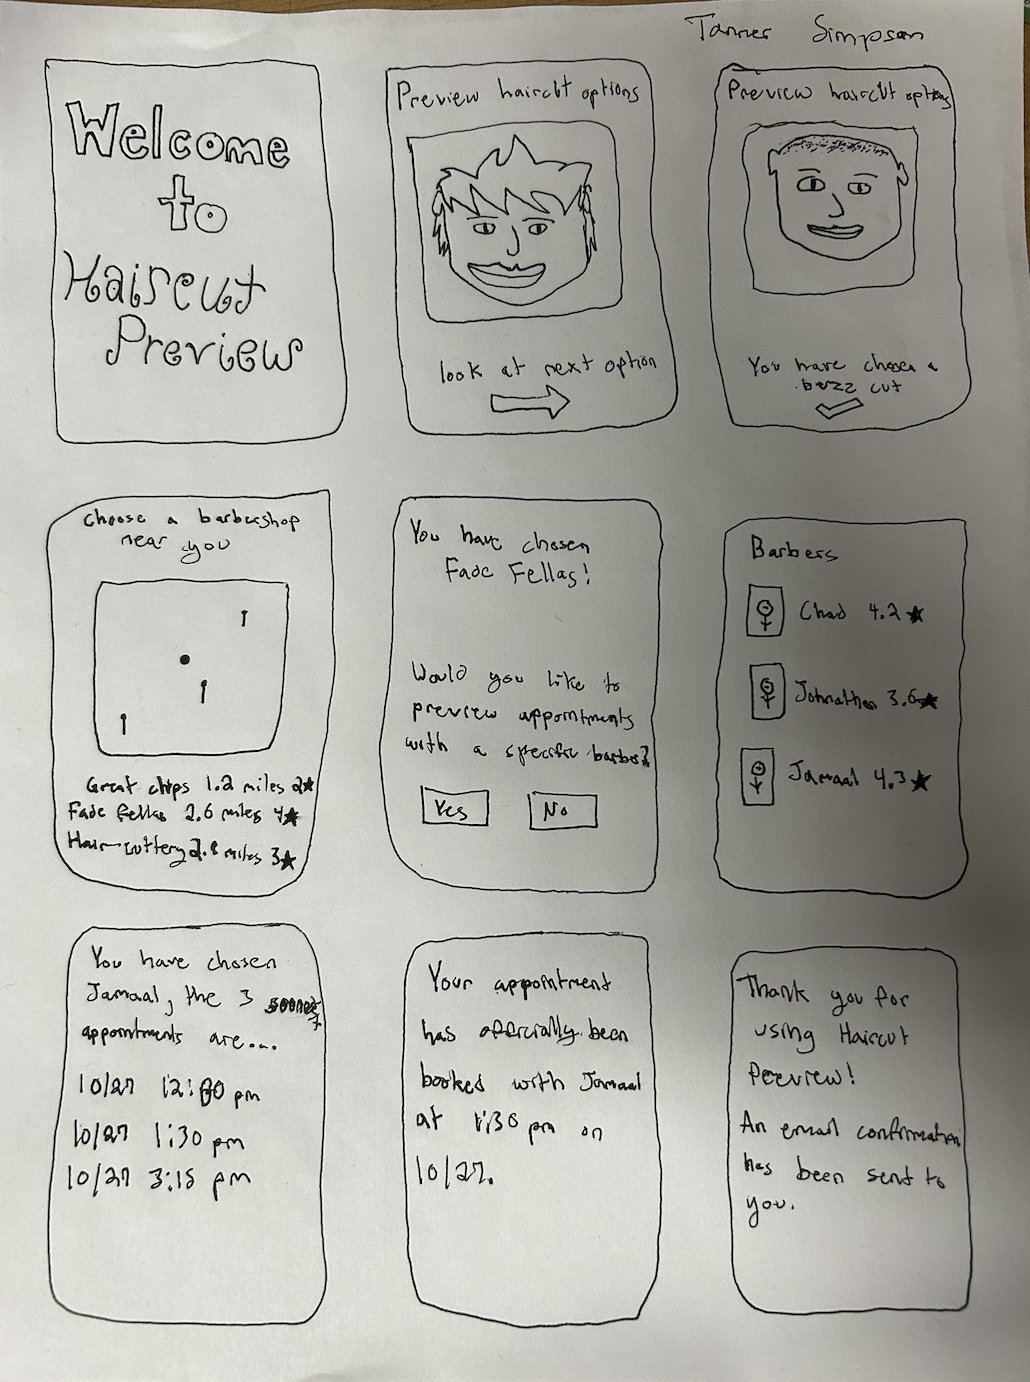 Tanner Simpson
Welcome
to
Haircut
Preview
Preview haircut options
look at next option
Preview haircut options
You have chosen a
buzz cut
Choose a barbershop
near you
Great clips 1.2 miles 2★
Fade fellas 2.6 miles 4★
Hair cuttery 2.8 miles 3★
You have chosen
Fade Fellas!
Would you like to
preview appointments
with a specific barber?
Yes
No
Barbers
Chad 4.2★
Johnathon 3.6★
Jamaal 4.3★
You have chosen
Jamaal, the 3 soonest
appointments are...
10/27 12:00 pm
10/27 1:30 pm
10/27 3:15 pm
Your appointment
has officially been
booked with Jamaal
at 1:30 pm on
10/27.
Thank you for
using Haircut
Preview!
An email confirmation
has been sent to
you.